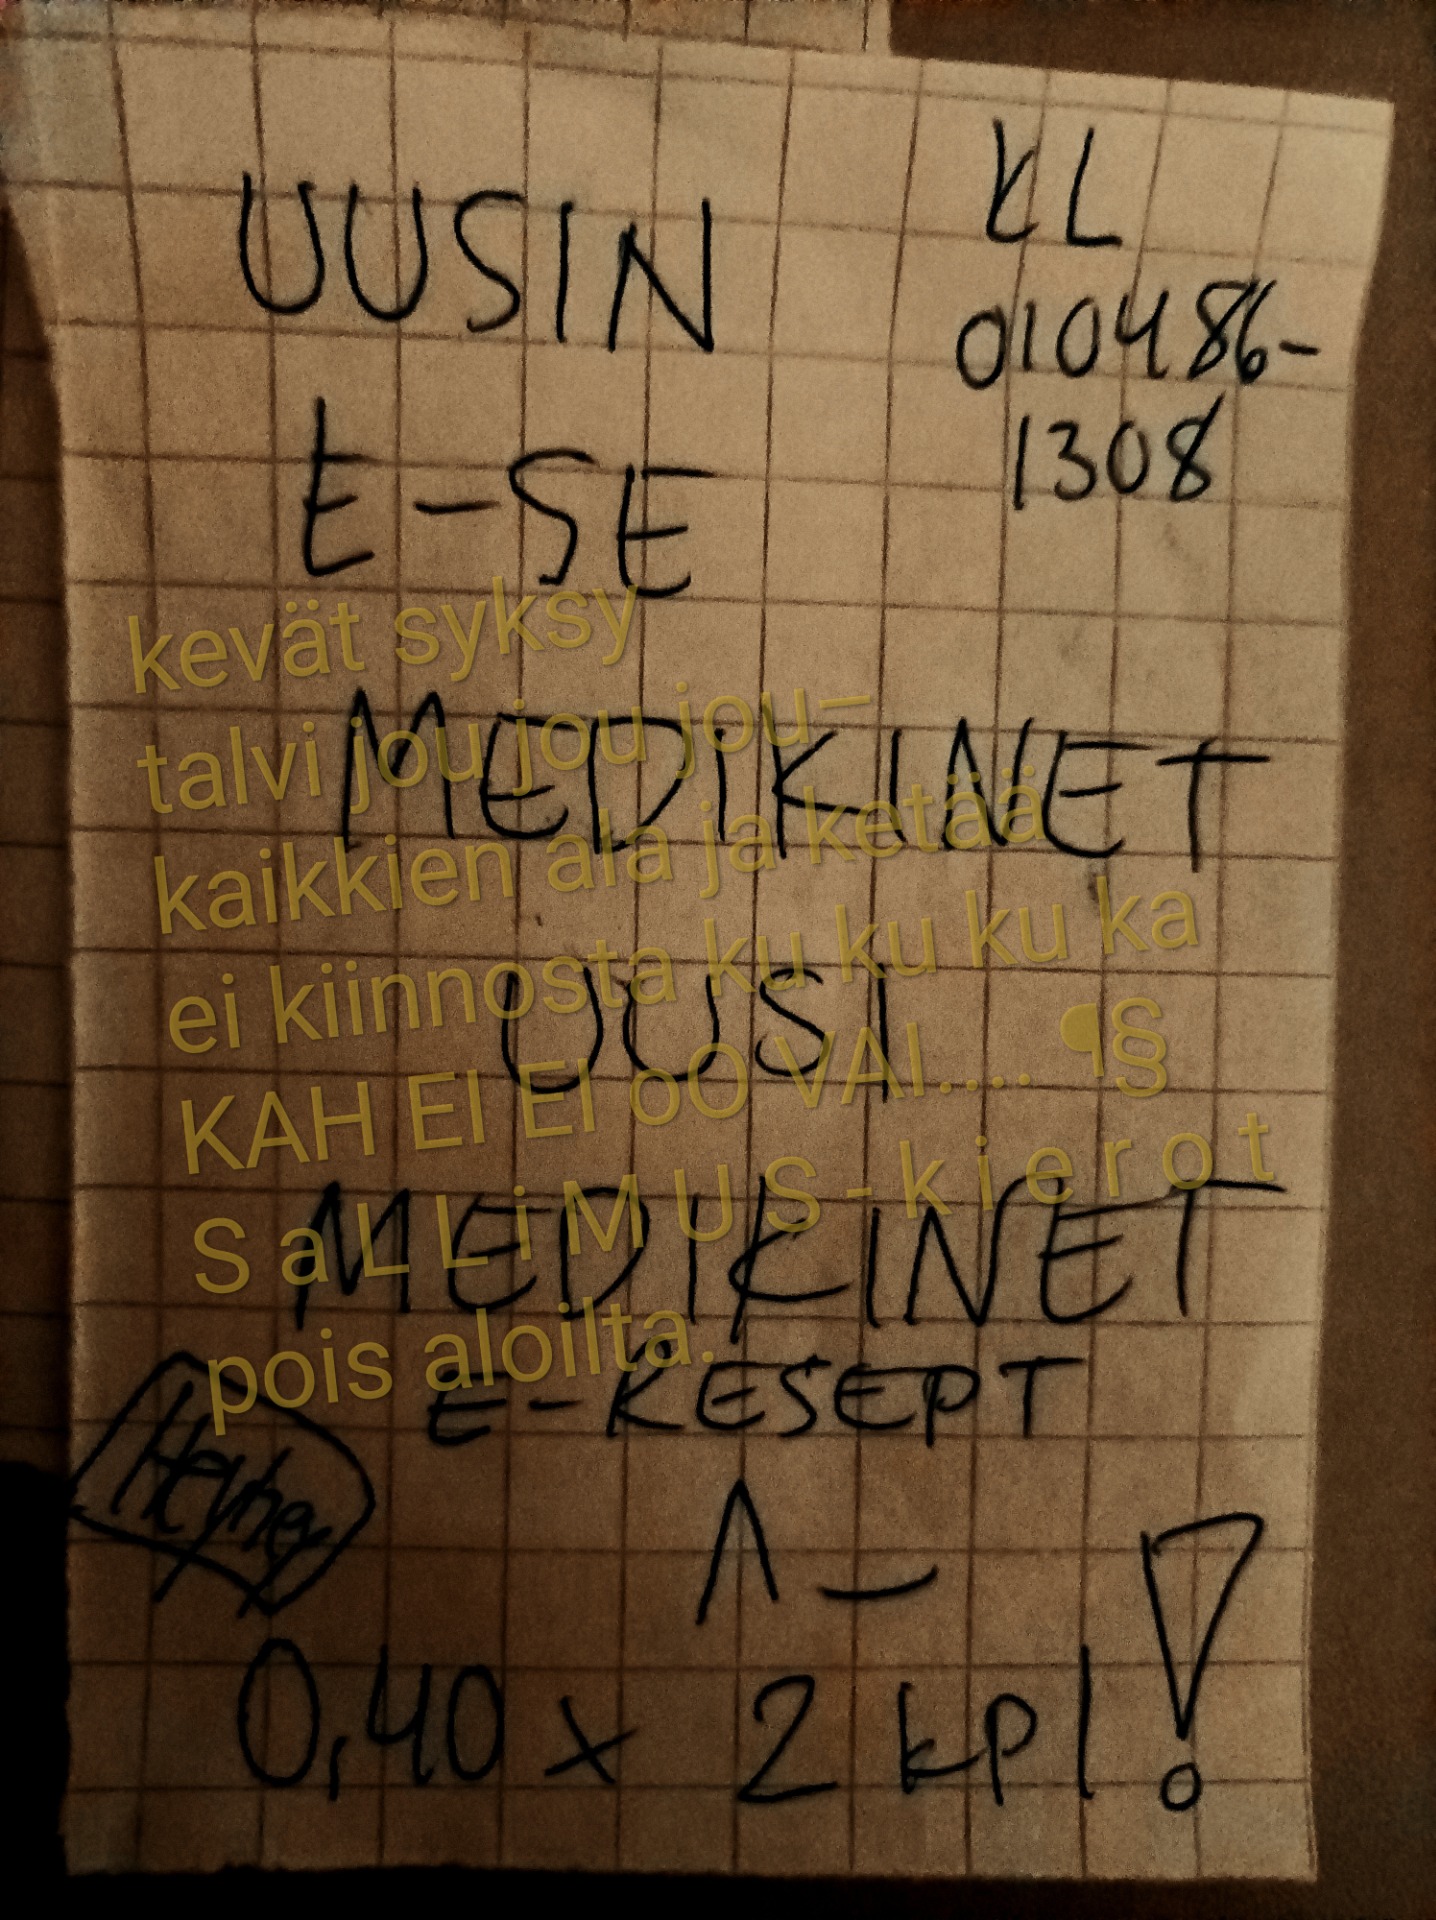 UUSIN
KL
010486-
1308
E-SE
kevät syksy
talvi jou jou jou–
MEDIKINET
kaikkien ala ja ketää
ei kiinnosta ku ku ku ka
UUSI
KAH EI EI oO VAI.... ¶§
S a L L i M U S - k i e r o t
MEDIKINET
pois aloilta.
E-RESEPT
Λ –
0,40 x 2 kpl !